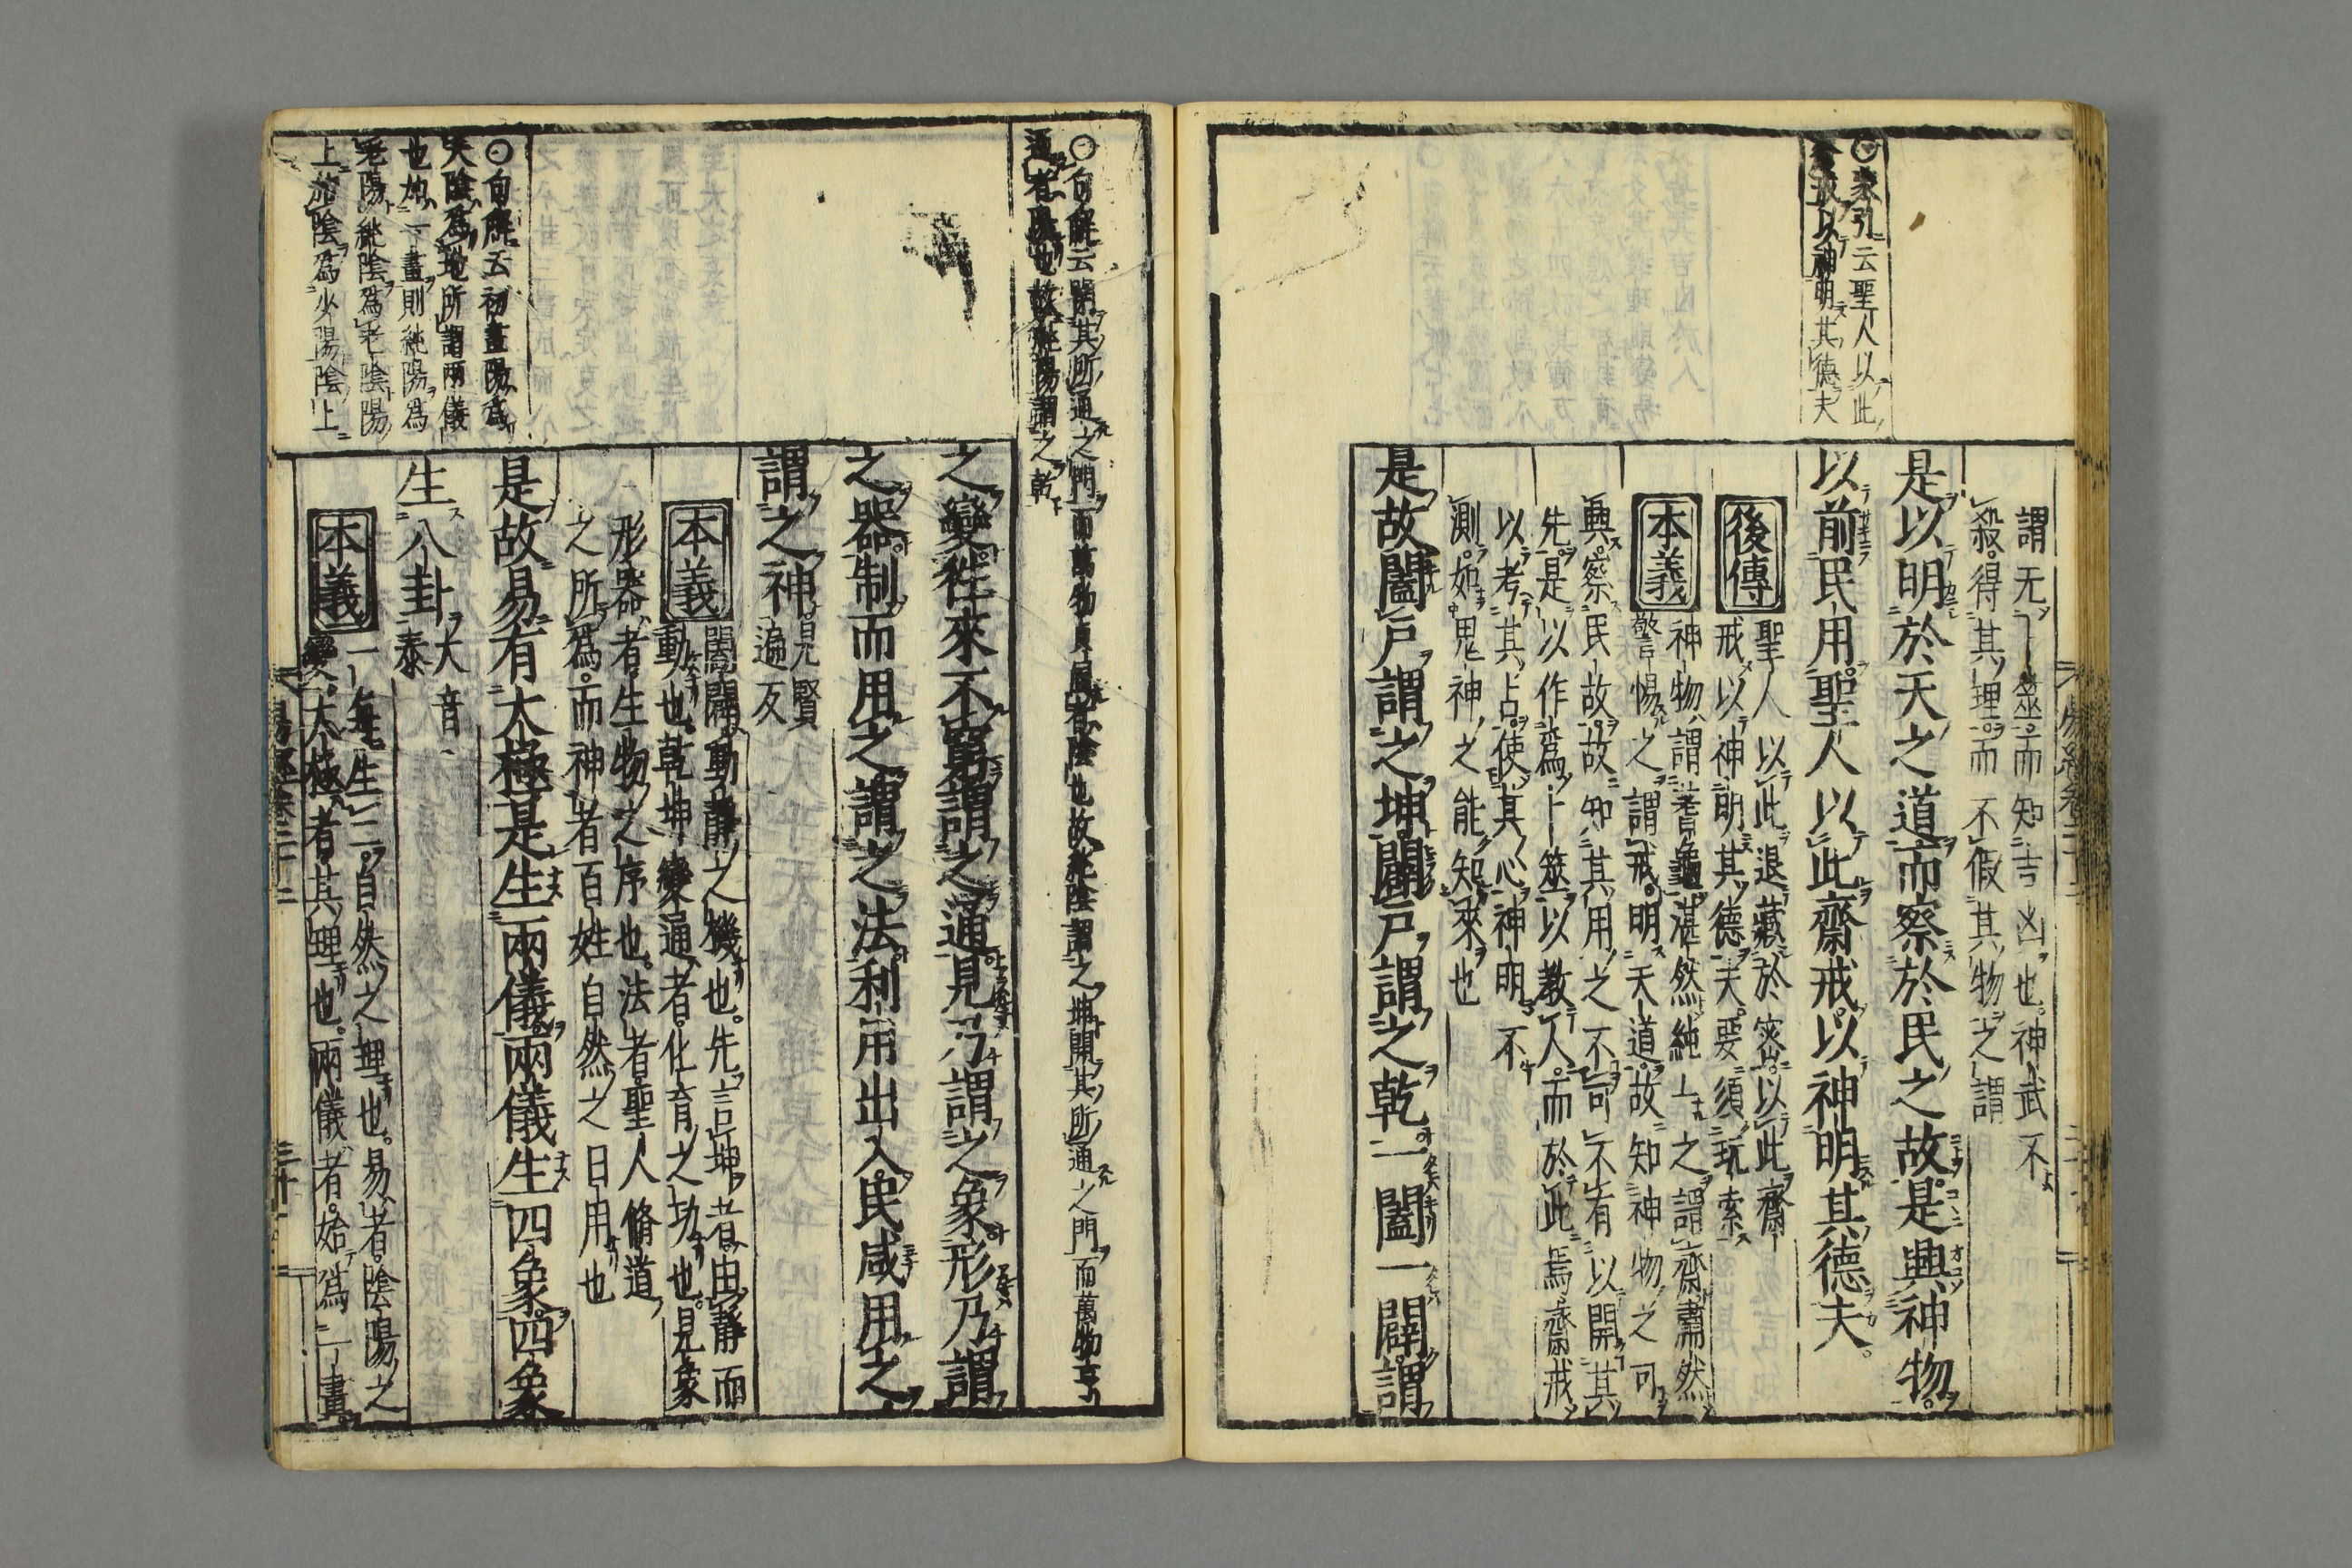 謂无卜筮而知吉凶也。神武不
殺。得其理。而不假其物之謂
是以明於天之道而察於民之故。是興神物。
以前民用。聖人以此齋戒。以神明其德夫。
後傳
聖人以此退藏於密。以此齋
戒以神明其德夫。要須玩索
本義
神物謂蓍龜湛然純一之謂齋肅然
警惕之謂戒。明天道。故知神物之可
興。察民故。故知其用之不可不有以開其
先。是以作爲卜筮以教人。而於此焉齋戒
以考其占。使其心神明。不
測。如鬼神之能知來也
是故闔戶謂之坤闢戶謂之乾。一闔一闢。謂
○蒙引云聖人以此
齋戒以神明其德夫
易經卷二十二
○句解云闢其所通之門而萬物貞屬者陰也故純陰謂之坤開其所通之門而萬物亨
通者陽也故純陽謂之乾
之變。徃來不窮。謂之通。見乃謂之象。形乃謂
之器。制而用之。謂之法。利用出入。民咸用之。
謂之神。見賢
遍反
本義
闔闢動靜之機也。先言坤者。由靜而
動也。乾坤變通者。化育之功也。見象
形器者。生物之序也。法者。聖人脩道
之所爲。而神者百姓自然之日用也
是故易有太極。是生兩儀。兩儀生四象。四象
生八卦。大音
泰
本義
一每生二。自然之理也。易者。陰陽之
變。太極者。其理也。兩儀者。始爲一畫
○句解云初畫陽爲
天陰爲地所謂兩儀
也如一畫則純陽爲
老陽純陰爲老陰陽
上施陰爲少陽陰上
易經卷二十二
三十一